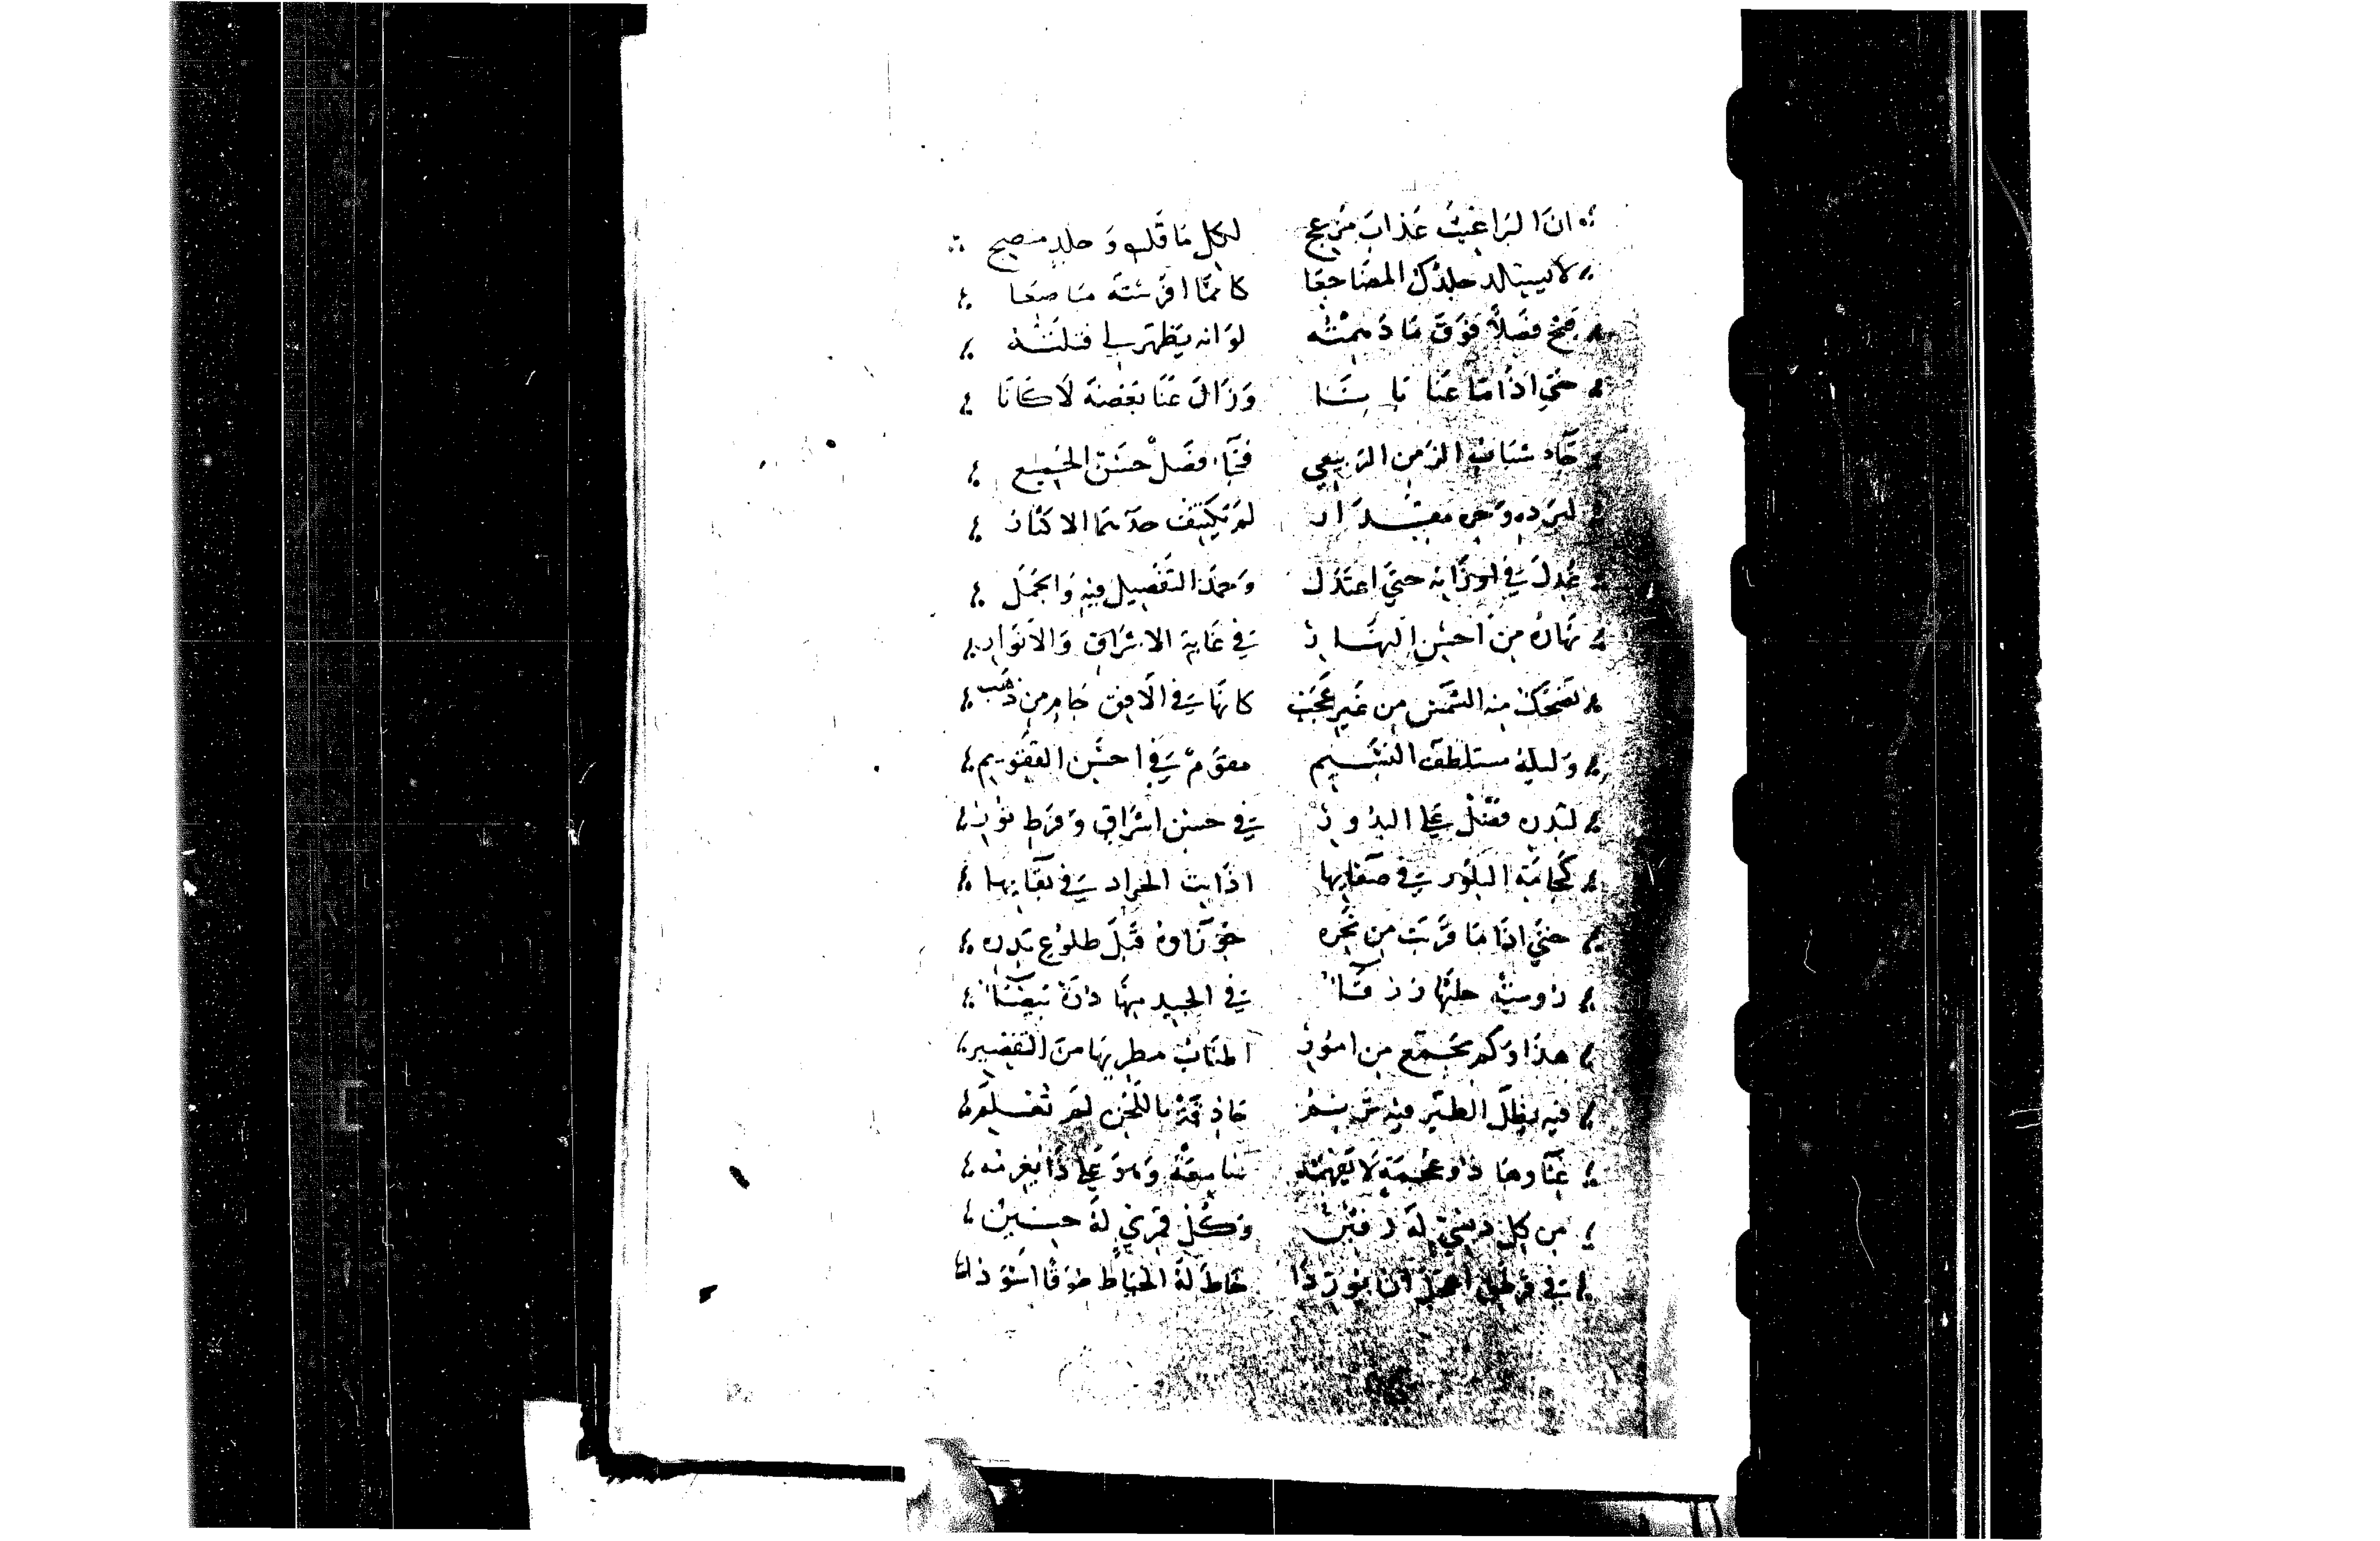 ان البراغيث عذاب مزعج لكل ما قلب وجلد منضج
لا يستلذ جلدك المضاجعا كانما افرشته مباضعا
قبح فصلا فوق ما ذممته لو انه يظهر لي قتلته
حتى اذا ما عنا بانا وزال عنا بغضه لا كانا
جاء شباب الزمن الربيعي فجاء فصل حسن الجميع
لبرده وحره مقدار لم يكتنف حدهما الاكثار
عدل في اوزانه حتى اعتدل وحمد التفصيل فيه والجمل
نهاره من احسن النهار في غاية الاشراق والانوار
تضحك فيه الشمس من غير عجب كانها في الافق جام من ذهب
وليله مستلطف النسيم مقوم في احسن التقويم
لبدره فضل على البدور في حسن اشراق وفرط نور
كجامة البلور في صفائها اذابت الجراد في نقائها
حتى اذا ما قربت من نحره جوزاوه قبل طلوع بدره
رومية حلتها زرقا في الجيد منها درة بيضا
هذا وكم تجمع من امور المناب مطريها من التقصير
فيه يظل الطير في ترنم حاذقة باللحن لم تعلم
غناوها ذو عجمة لا يفهمه سامعه وهو على ذا يغرمه
من كل دبسي له رنين وكل قمري له حنين
في قرطق اعجل ان يوردا خاط له الخياط طوقا اسودا